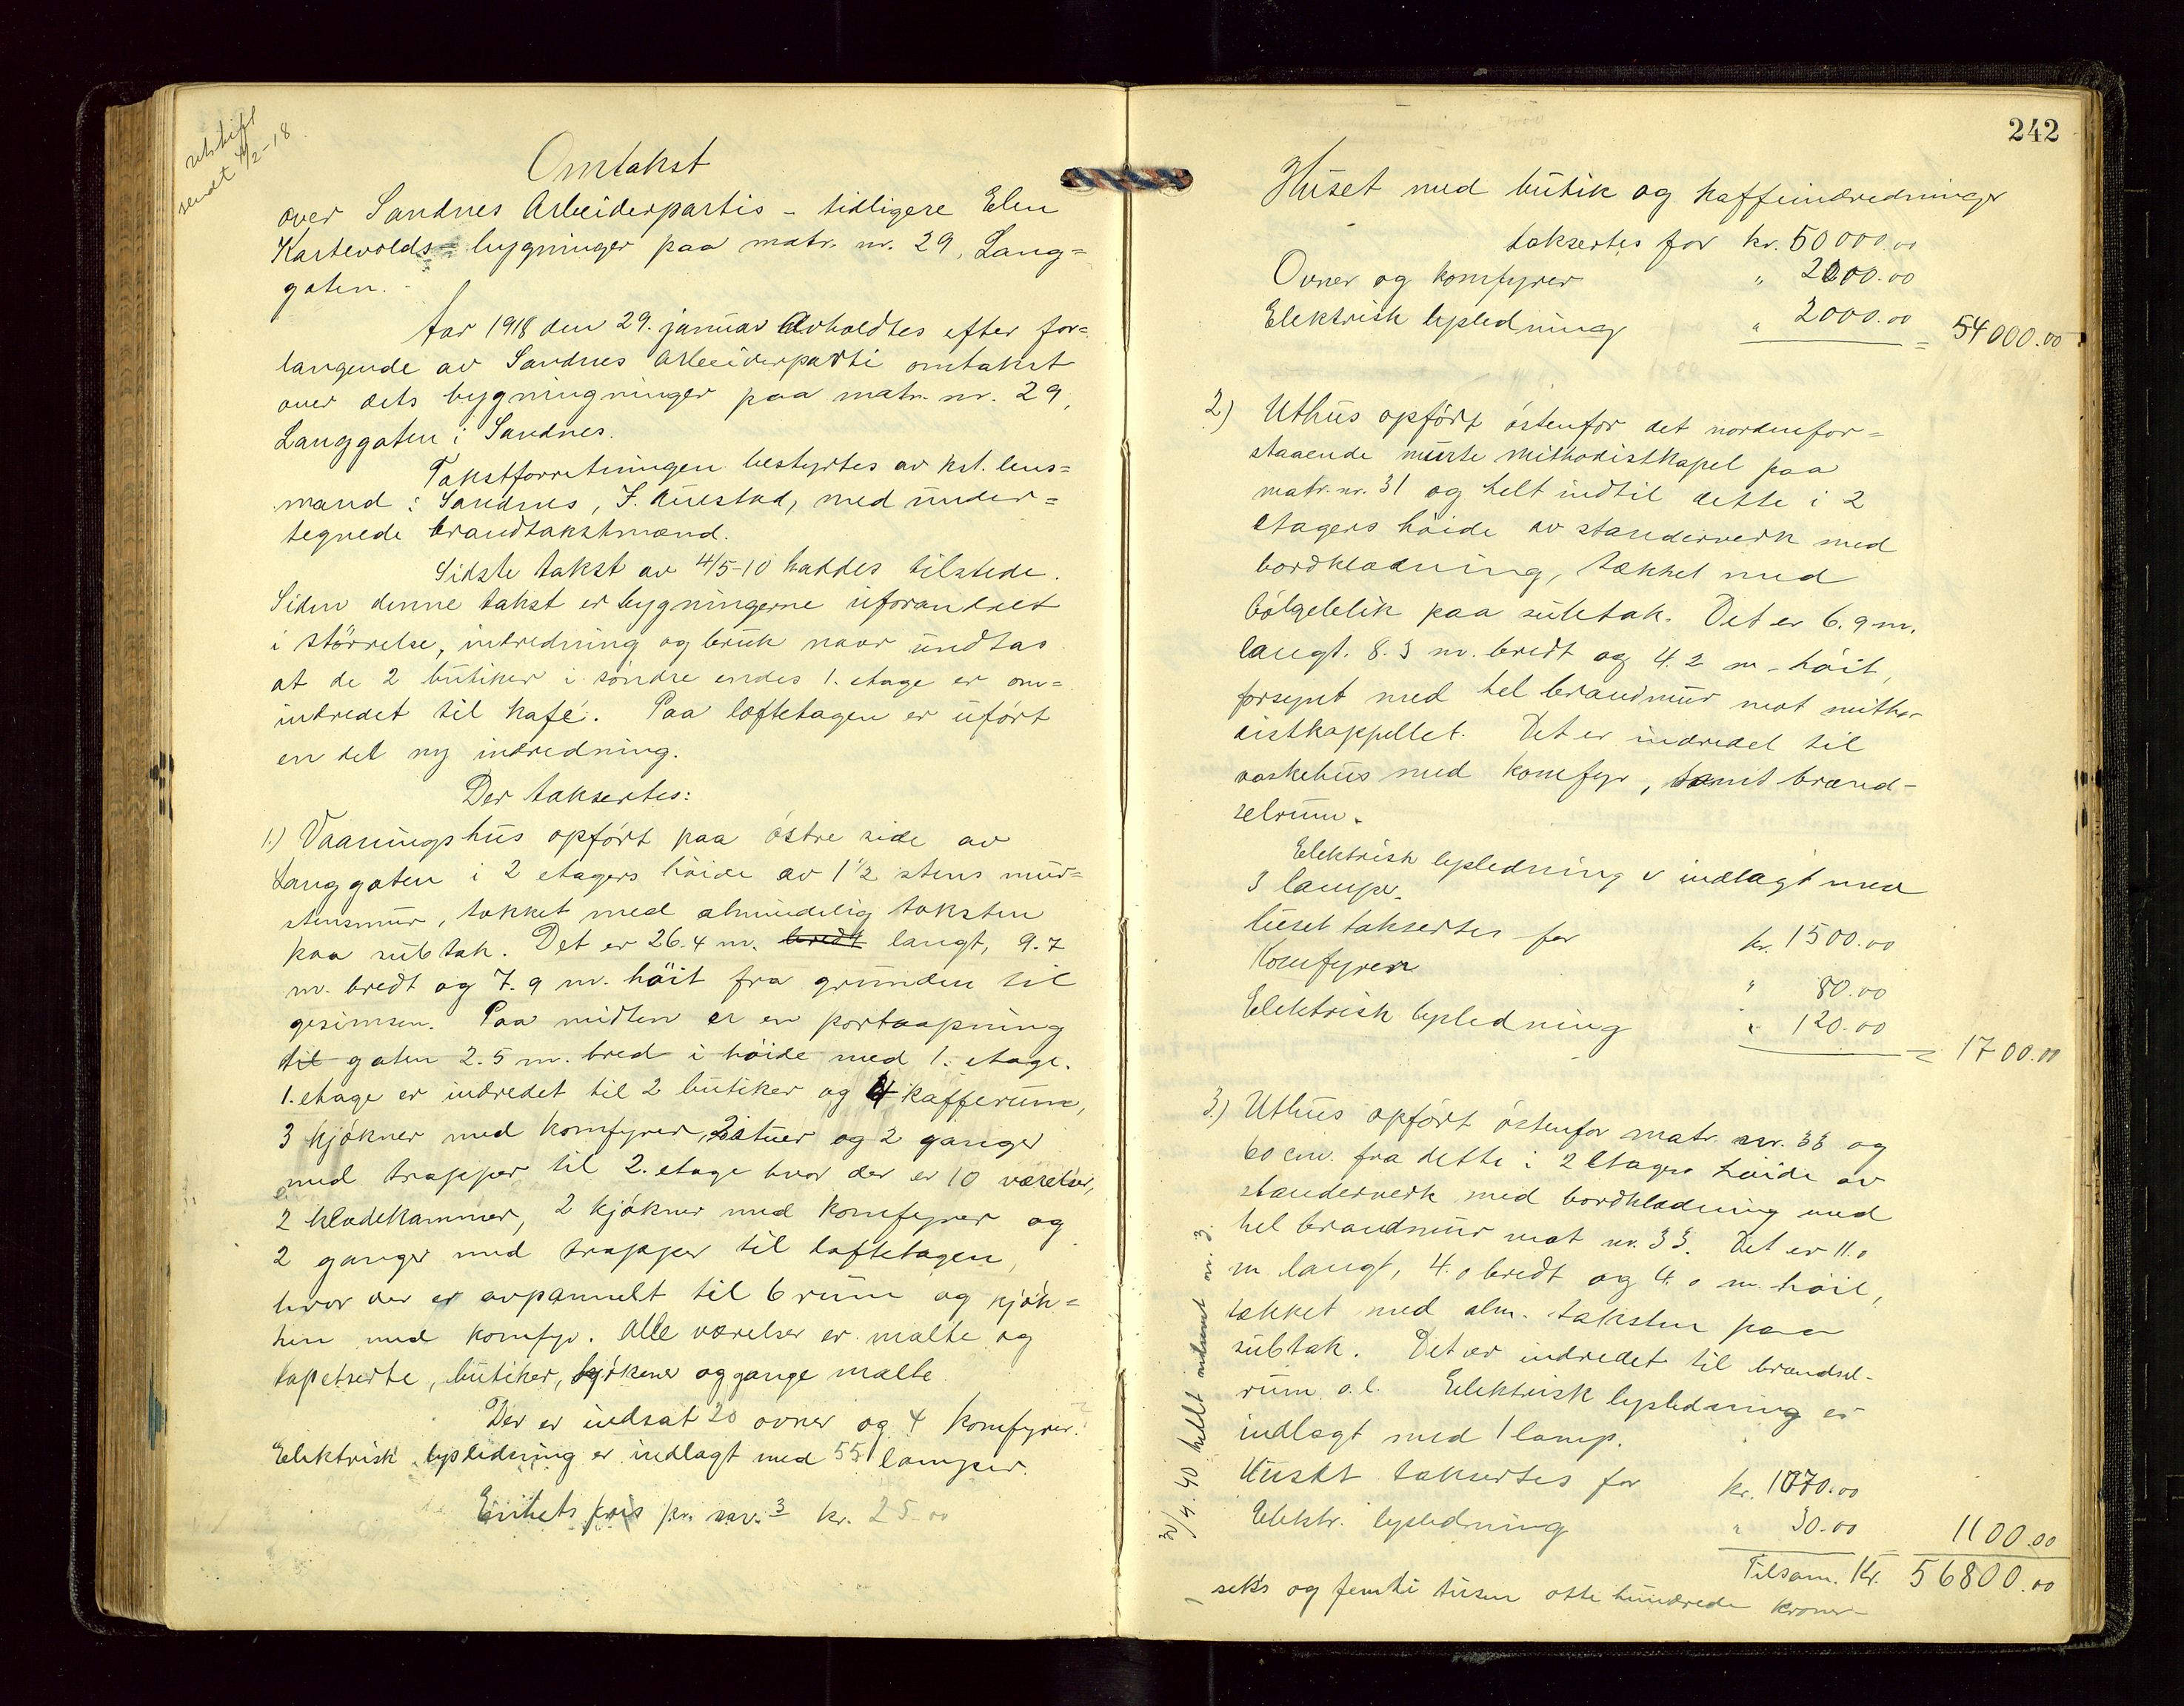 utskift
sendt 4/2-18
Omtakst
over Sandnes Arbeiderpartis - tidligere Elen
Kartevolds - bygninger paa matr. nr. 29, Lang=
gaten. -
Aar 1918 den 29. januar avholdtes efter for=
langende av Sandnes Arbeiderparti omtakst
over dets bygningninger paa matr. nr. 29,
Langgaten i Sandnes.
Takstforretningen bestyrtes av kst. lens=
mand i Sandnes, J. Auestad, med under=
tegnede brandtakstmænd.
Sidste takst av 4/5-10 haddes tilstede.
Siden denne takst er bygningerne uforandret
i størrelse, indredning og bruk naar undtas
at de 2 butiker i søndre endes 1. etage er om=
indredet til kafé. Paa loftetagen er uført
en del ny indredning.
Der taksertes:
1.) Vaaningshus opført paa østre side av
Langgaten i 2 etagers høide av 1 1/2 stens mur=
stensmur, tækket med almindelig taksten
paa subtak. Det er 26.4 m. bredt langt, 9.7
m. bredt og 7.9 m. høit fra grunden til
gesimsen. Paa midten er en portaapning
til gaten 2.5 m. bred i høide med 1. etage.
1. etage er indredet til 2 butiker og 4 kafferum,
3 kjøkner med komfyrer, 2 stuer og 2 ganger
med trapper til 2. etage hvor der er 10 værelser,
2 klædekammer, 2 kjøkner med komfyrer og
2 ganger med trapper til loftetagen,
hvor der er avpannelt til 6 rum og kjøk=
ken med komfyr. Alle værelser er malte og
tapetserte, butiker, kjøkener og gange malte.
Der er indsat 20 ovner og 4 komfyrer.
Elektrisk lysledning er indlagt med 55 lamper.
Enhets pris pr. m.3 kr. 25.00
242
Huset med butik og kaffeindredninger
taksertes for kr. 50000.00
Ovner og komfyrer " 2000.00
Elektrisk lysledning " 2000.00 = 54000.00
2) Uthus opført østenfor det nordenfor=
staaende murte methodistkapel paa
matr. nr. 31 og helt indtil dette i 2
etagers høide av standerverk med
bordklædning, tækket med
bølgeblik paa subtak. Det er 6.9 m.
langt. 8.3 m. bredt og 4.2 m. høit,
forsynt med hel brandmur mot metho-
distkappellet. Det er indredet til
vaskehus med komfyr, samt brænd-
selrum.
Elektrisk lysledning er indlagt med
3 lamper.
Huset taksertes for kr. 1500.00
Komfyren " 80.00
Elektrisk lysledning " 120.00 = 1700.00
3.) Uthus opført østenfor matr. nr. 33 og
60 cm. fra dette i 2 etagers høide av
standerverk med bordklædning med
hel brandmur mot nr. 33. Det er 11.0
m. langt, 4.0 bredt og 4.0 m. høit,
tækket med alm. taksten paa
subtak. Det er indredet til brændsel-
rum o.l. Elektrisk lysledning er
indlagt med 1 lamp.
Huset taksertes for kr. 1070.00
Elektr. lysledning " 30.00 = 1100.00
Tilsam. Kr. 56800.00
seks og femti tusen otte hundrede kroner